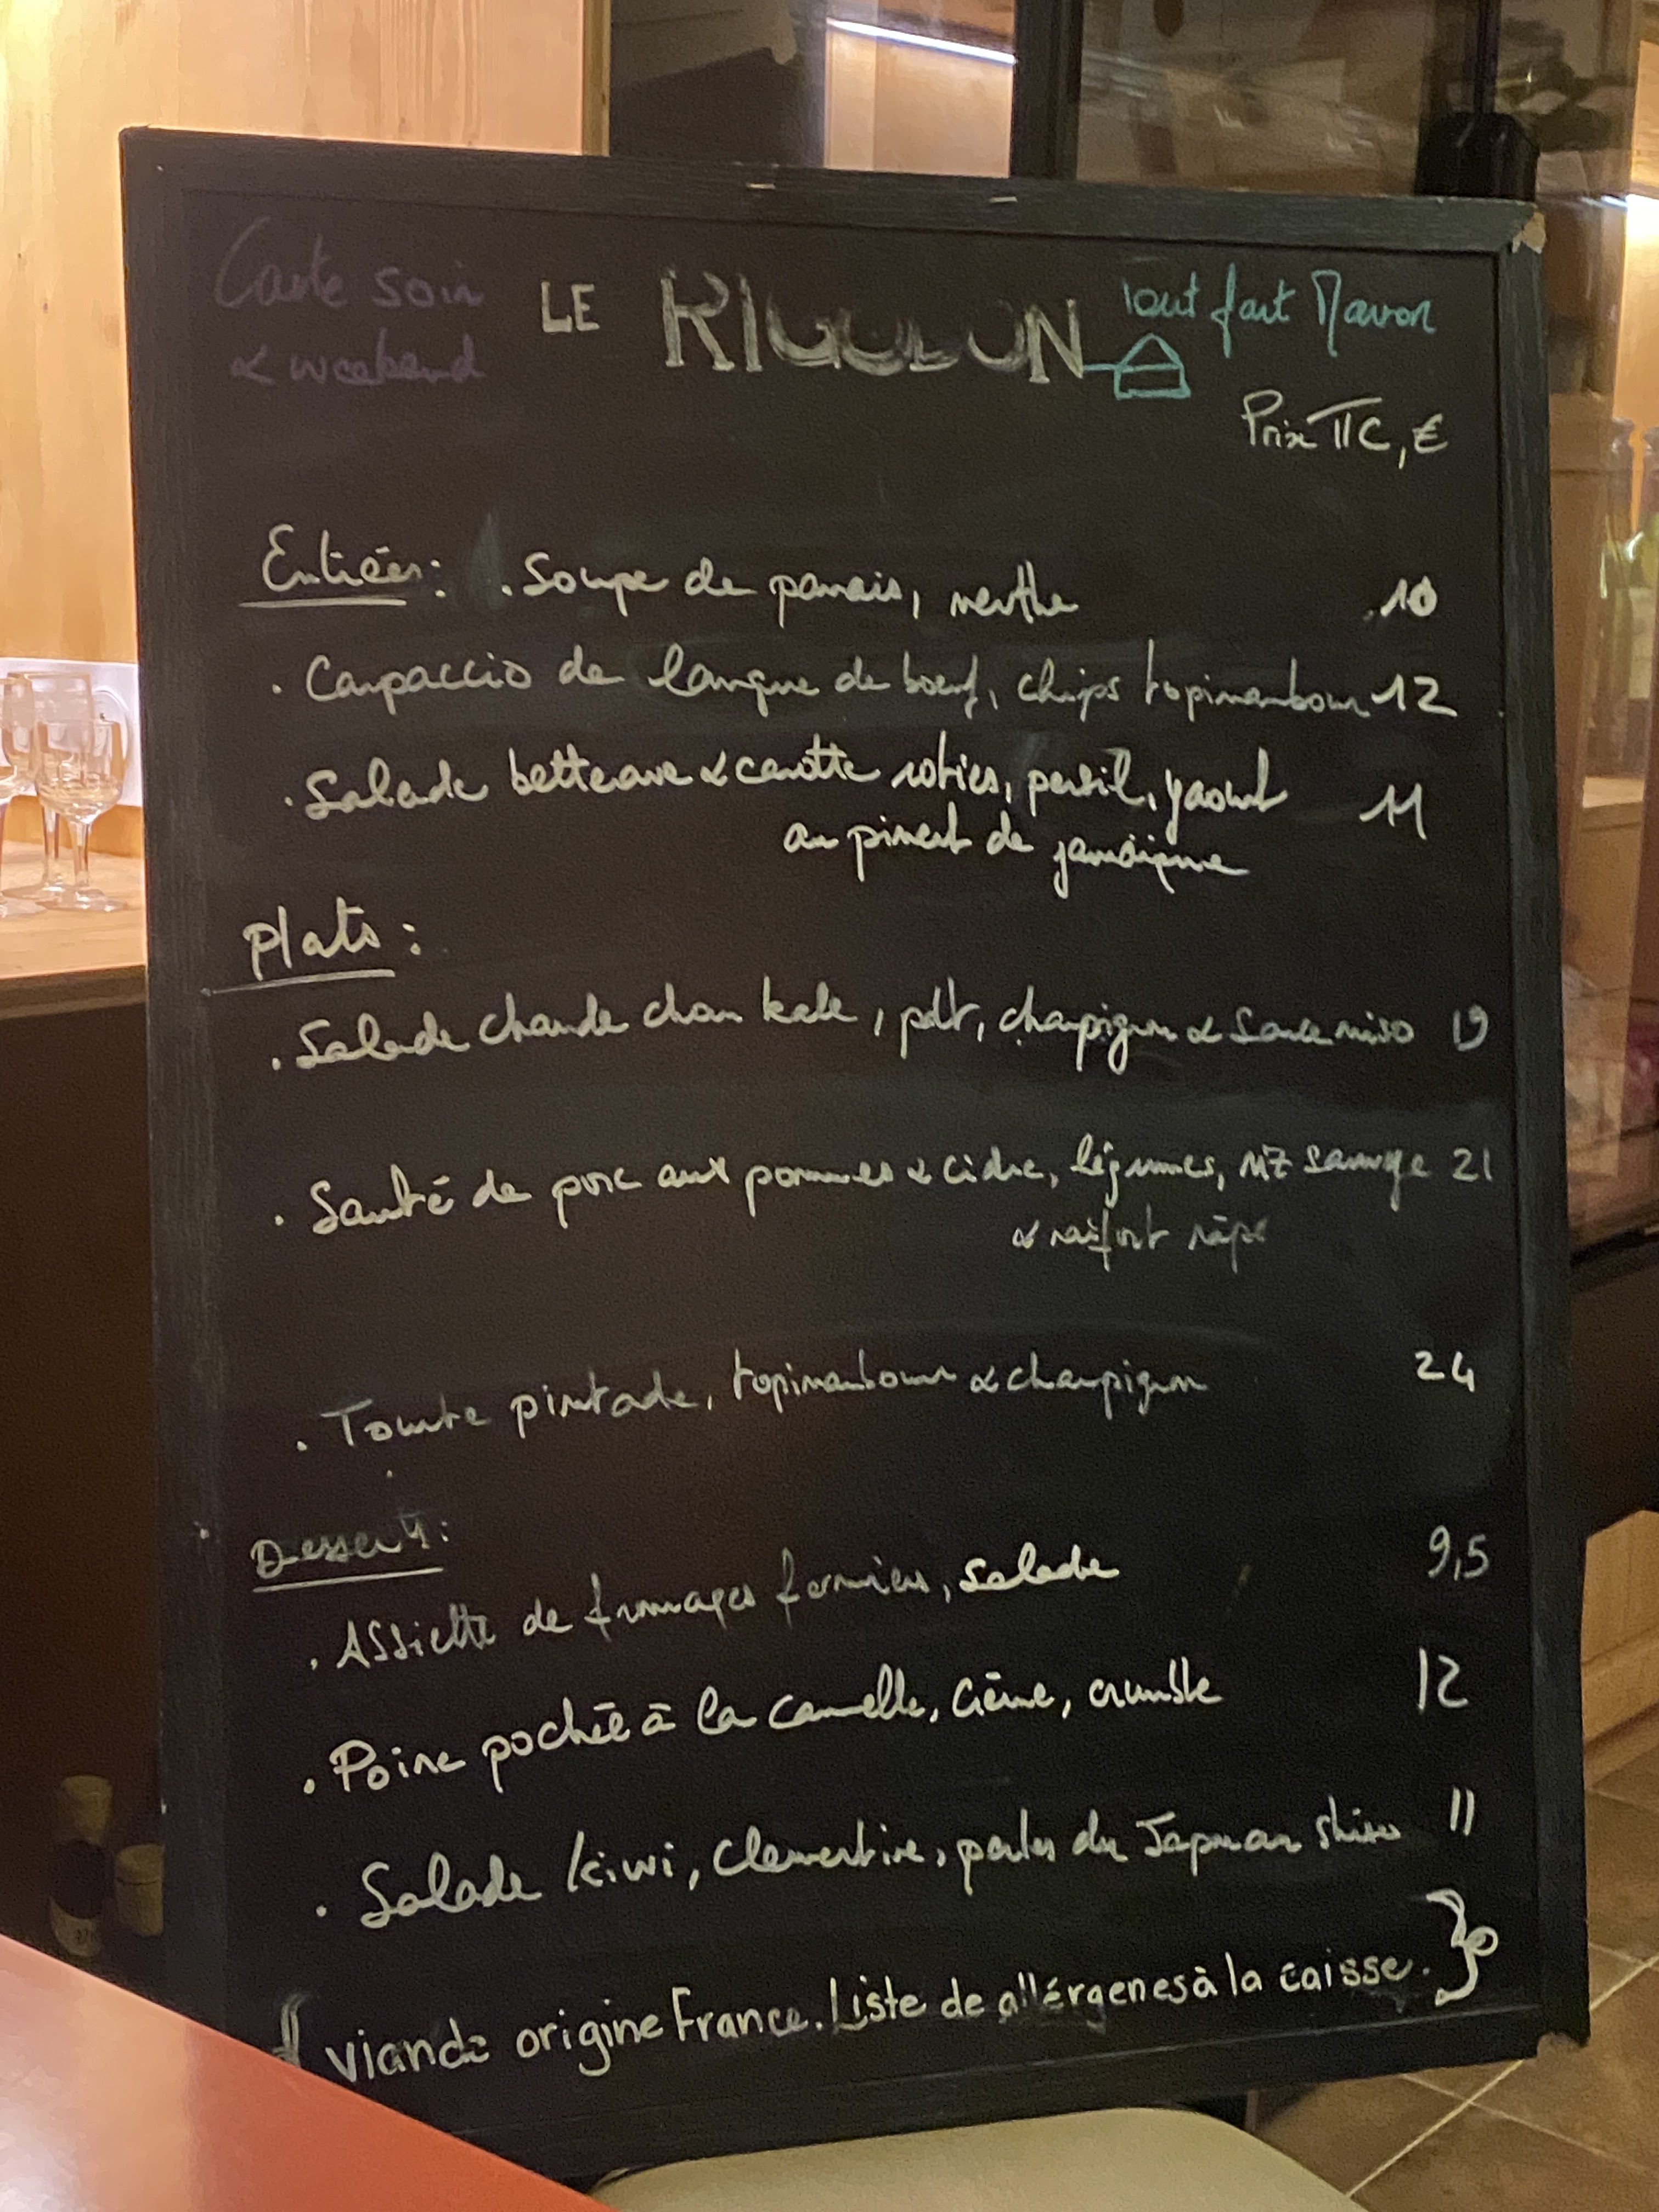 Carte soir
& weekend
LE RIGOLON
Tout fait Maison
Prix TTC, €
Entrées: . Soupe de panais, menthe 10
. Carpaccio de langue de boeuf, chips topinambour 12
. Salade betterave & carotte roties, persil, yaourt 11
au piment de jamaïque
Plats :
. Salade chaude chou kale, pdt, champignon & sauce miso 19
. Sauté de porc aux pommes & cidre, légumes, riz sauvage 21
& raifort râpé
. Tourte pintade, topinambour & champignon 24
Desserts:
. Assiette de fromages fermiers, salade 9,5
. Poire pochée à la cannelle, crème, crumble 12
. Salade kiwi, clementine, perles du Japon au shiso 11
viande origine France. Liste de allérgenes à la caisse.